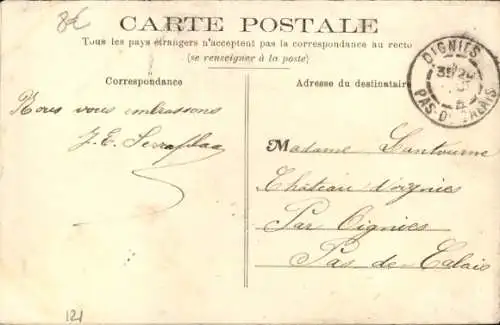 8€
CARTE POSTALE
Tous les pays étrangers n'acceptent pas la correspondance au recto
(se renseigner à la poste)
Correspondance
Adresse du destinataire
OIGNIES
PAS-DE-CALAIS
Nous vous embrassons
J. E.
Madame Lantourne
Château d'oignies
Par Oignies
Pas de Calais
121